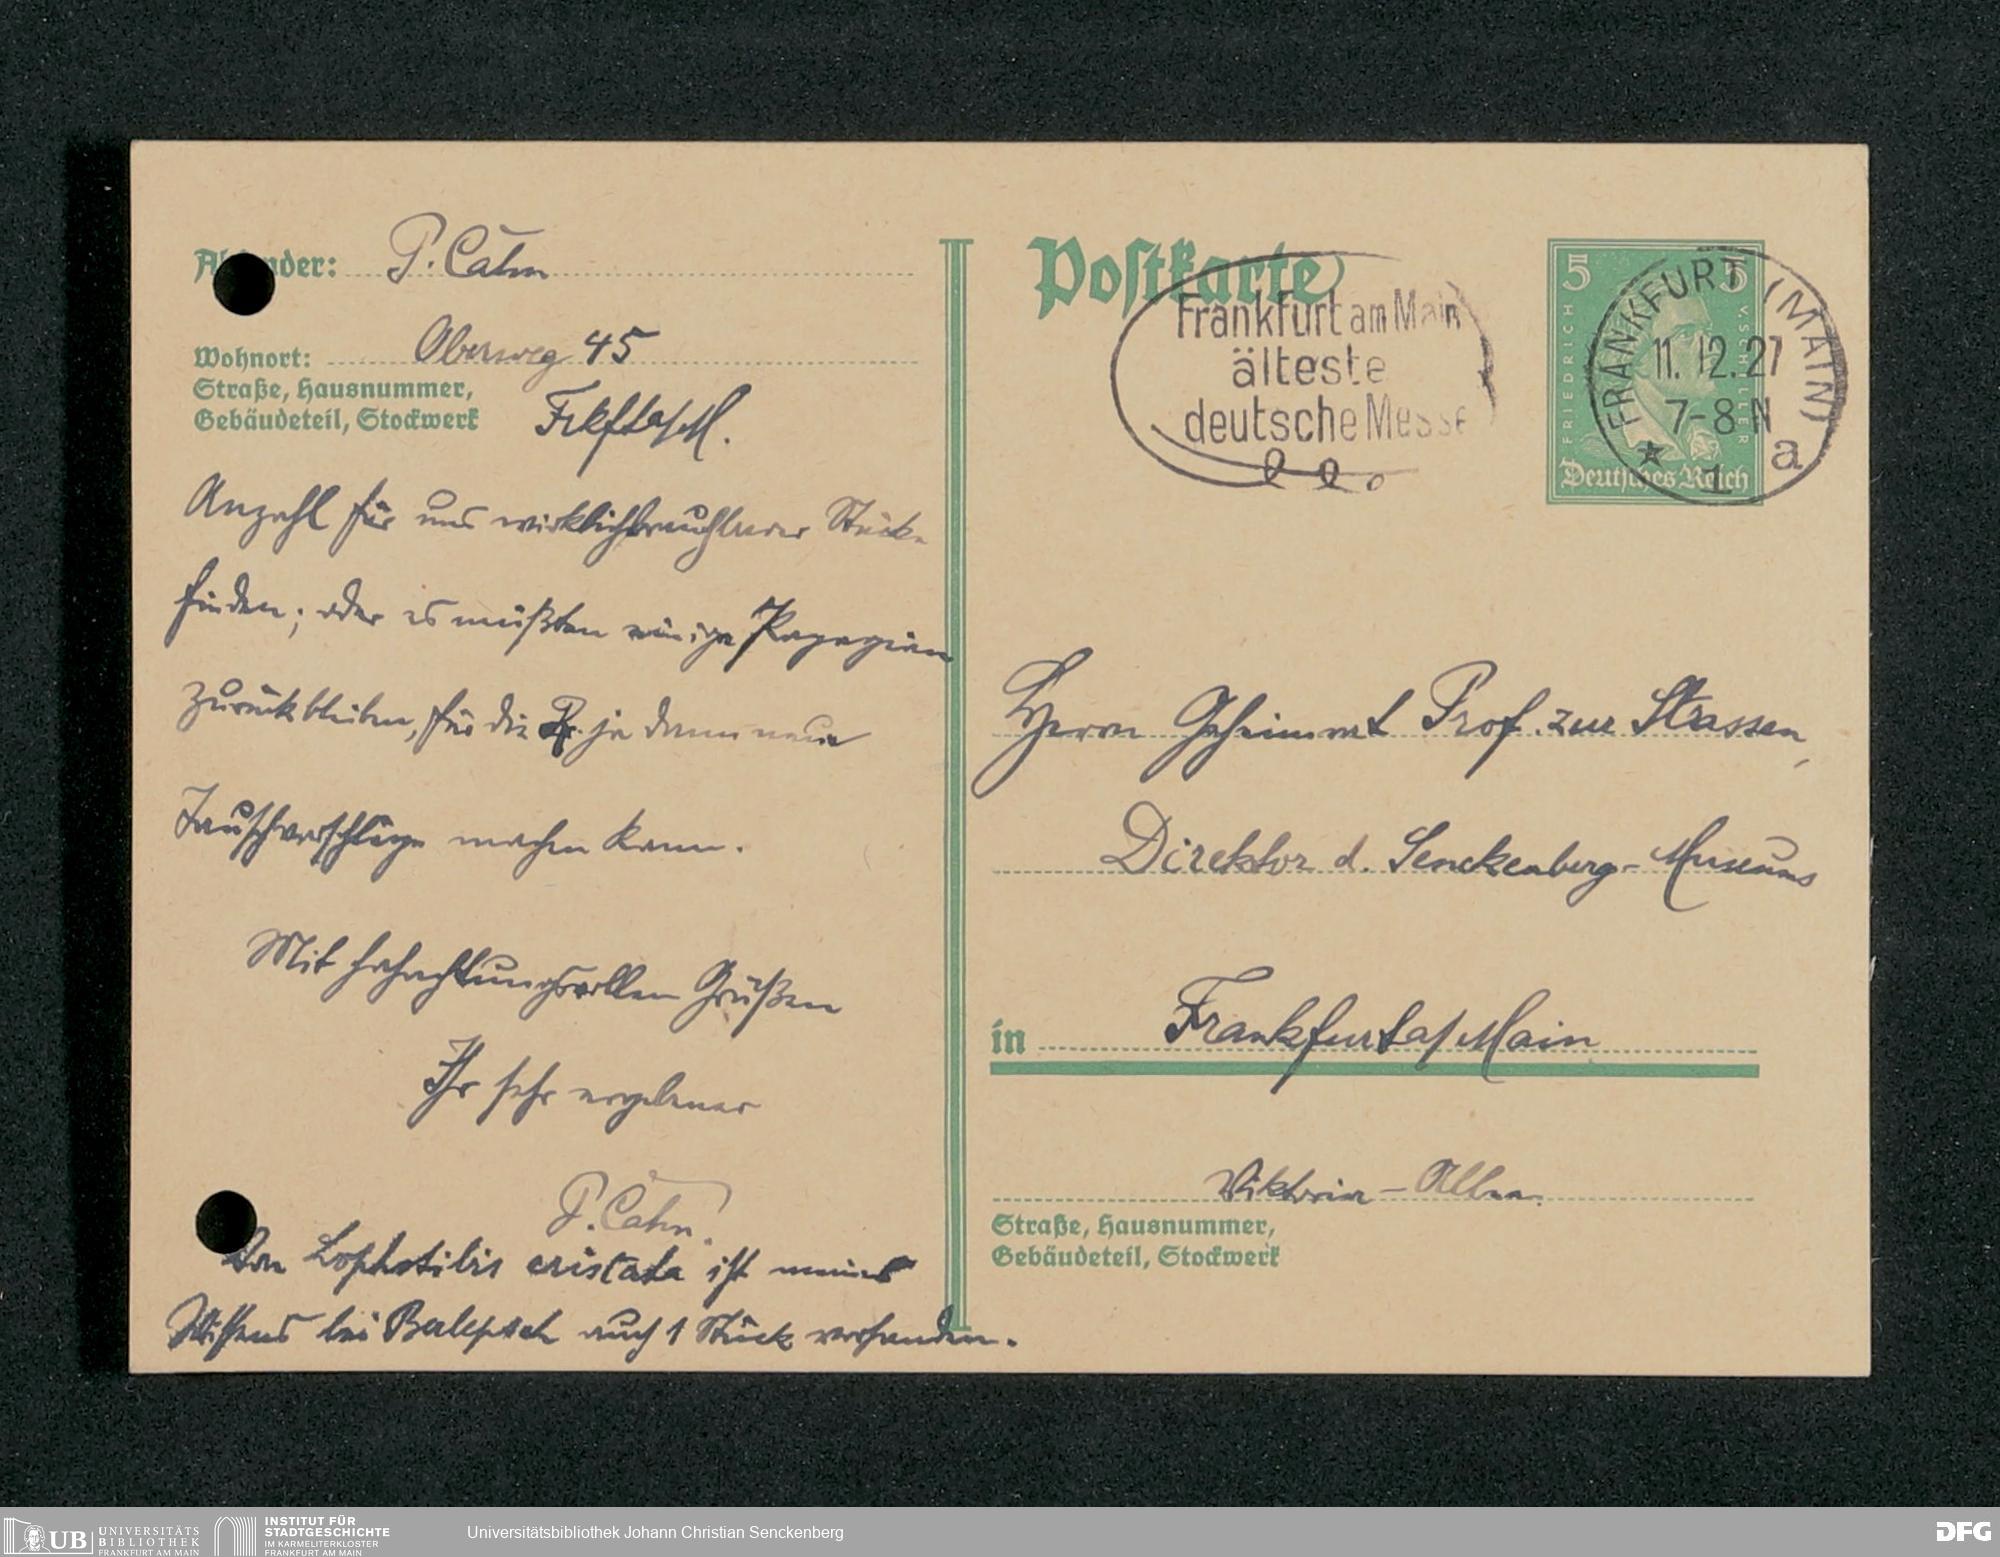 Absender: P. Cahn
Wohnort: Oberweg 45
Straße, Hausnummer,
Gebäudeteil, Stockwerk
Frkft a/M.
Anzahl für uns wirklich brauchbarer Stücke
finden; oder es müßten einige Papageien
zurückbleiben, für die Pr. ja dann neue
Tauschvorschläge machen kann.
Mit hochachtungsvollen Grüßen
Ihr sehr ergebener
P. Cahn.
Von Lophotibis cristata ist meines
Wissens bei Berlepsch auch 1 Stück vorhanden.
Postkarte
Frankfurt am Main
älteste
deutsche Messe
5 5
FRIEDRICH V. SCHILLER
Deutsches Reich
FRANKFURT (MAIN)
11.12.27
7-8 N
* 1 a
Herrn Geheimrat Prof. zur Strassen,
Direktor d. Senckenberg-Museums
in Frankfurt a/Main
Viktoria-Allee.
Straße, Hausnummer,
Gebäudeteil, Stockwerk
UB UNIVERSITÄTS
BIBLIOTHEK
FRANKFURT AM MAIN
INSTITUT FÜR
STADTGESCHICHTE
IM KARMELITERKLOSTER
FRANKFURT AM MAIN
Universitätsbibliothek Johann Christian Senckenberg
DFG